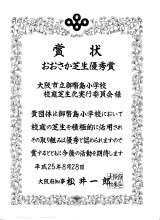 賞状
おおさか芝生優秀賞
大阪市立御幣島小学校
校庭芝生化実行委員会様
貴団体は御幣島小学校において
校庭の芝生を積極的に活用され
その取り組みは優秀と認められますので
賞するとともに今後の活動を期待します
平成25年8月28日
大阪府知事 松井一郎